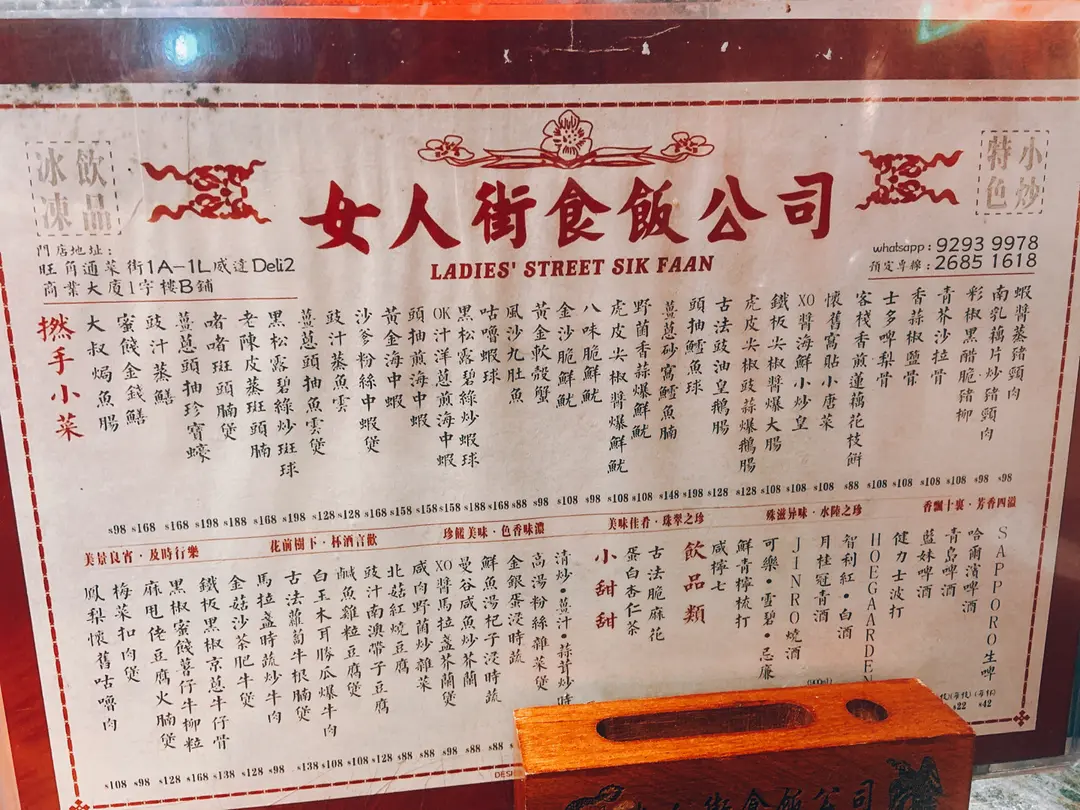 飲品
冰凍
門店地址:
旺角通菜街1A-1L威達Deli2
商業大廈1字樓B鋪
女人街食飯公司
LADIES' STREET SIK FAAN
小炒
特色
whatsapp : 9293 9978
預定專線 : 2685 1618
撚手小菜
大叔焗魚腸
蜜餞金錢鱔
豉汁蒸鱔
薑蔥頭抽珍寶蠔
啫啫斑頭腩煲
老陳皮蒸斑頭腩
黑松露碧綠炒斑球
薑蔥頭抽魚雲煲
豉汁蒸魚雲
沙爹粉絲中蝦煲
黃金海中蝦
頭抽煎海中蝦
OK汁洋蔥煎海中蝦
黑松露碧綠炒蝦球
咕嚕蝦球
風沙九肚魚
黃金軟殼蟹
金沙脆鮮魷
八味脆鮮魷
虎皮尖椒醬爆鮮魷
野菌香蒜爆鮮魷
薑蔥砂窩鱸魚腩
頭抽鱸魚球
古法豉油皇鵝腸
虎皮尖椒豉蒜爆鵝腸
鐵板尖椒醬爆大腸
XO醬海鮮小炒皇
懷舊窩貼小唐菜
家棧香煎蓮藕花枝餅
士多啤梨骨
香蒜椒鹽骨
青芥沙拉骨
彩椒黑醋脆豬柳
南乳藕片炒豬頸肉
蝦醬蒸豬頸肉
$98 $168 $168 $198 $168 $198 $128 $128 $168 $158 $158 $158 $188 $168 $88 $98 $108 $98 $108 $108 $148 $198 $128 $128 $108 $108 $108 $88 $108 $108 $108 $108 $98 $98
美景良宵·及時行樂
花前樹下·杯酒言歡
珍饈美味·色香味濃
美味佳肴·珠翠之珍
殊滋异味·水陸之珍
香飄十裏·芳香四溢
鳳梨懷舊咕嚕肉
梅菜扣肉煲
麻甩佬豆腐火腩煲
黑椒蜜餞薯仔牛柳粒
鐵板黑椒京蔥牛仔骨
金菇沙茶肥牛煲
馬拉盞時蔬炒牛肉
古法蘿蔔牛根腩煲
白玉木耳勝瓜爆牛肉
鹹魚雞粒豆腐煲
豉汁南澳帶子豆腐
北菇紅燒豆腐
咸肉野菌炒雜菜
XO醬馬拉盞芥蘭煲
曼谷咸魚炒芥蘭
鮮魚湯杞子浸時蔬
金銀蛋浸時蔬
高湯粉絲雜菜煲
清炒·薑汁·蒜茸炒時
小甜甜
蛋白杏仁茶
古法脆麻花
飲品類
咸檸七
鮮青檸梳打
可樂·雪碧·忌廉
JINRO燒酒
月桂冠青酒
智利紅·白酒
HOEGAARDEN
健力士波打
藍妹啤酒
青島啤酒
哈爾濱啤酒
SAPPORO生啤
$22 $42
$108 $98 $128 $168 $138 $128 $98 $138 $108 $108 $88 $88 $98 $88 $88
女人街食飯公司